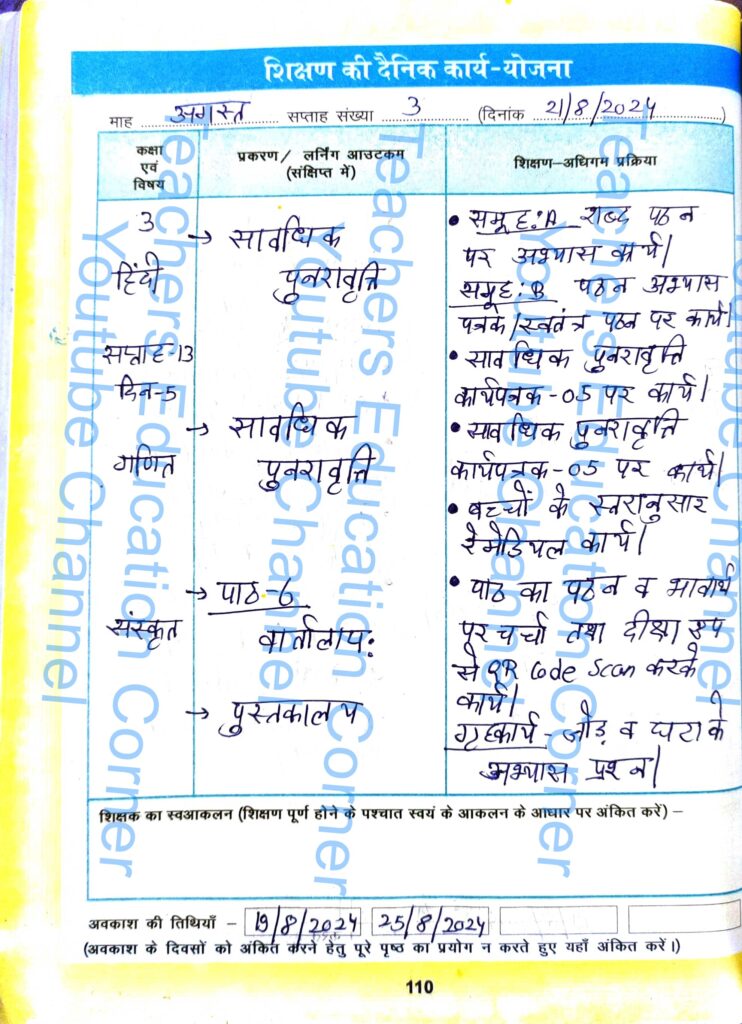 शिक्षण की दैनिक कार्य-योजना
माह अगस्त सप्ताह संख्या 3 (दिनांक 21/8/2024)
कक्षा
एवं
विषय
प्रकरण/ लर्निंग आउटकम
(संक्षिप्त में)
शिक्षण-अधिगम प्रक्रिया
3
हिंदी
सप्ताह-13
दिन-5
गणित
संस्कृत
→ सावधिक
पुनरावृत्ति
→ सावधिक
पुनरावृत्ति
→ पाठ-6
वार्तालाप:
→ पुस्तकालय
• समूह:A शब्द पठन
पर अभ्यास कार्य।
समूह:B पठन अभ्यास
पत्रक/स्वतंत्र पठन पर कार्य।
• सावधिक पुनरावृत्ति
कार्यपत्रक-05 पर कार्य।
• सावधिक पुनरावृत्ति
कार्यपत्रक-05 पर कार्य।
• बच्चों के स्तरानुसार
रेमेडियल कार्य।
• पाठ का पठन व भावार्थ
पर चर्चा तथा दीक्षा एप
से QR Code Scan करके
कार्य।
गृहकार्य - जोड़ व घटा के
अभ्यास प्रश्न।
शिक्षक का स्वआकलन (शिक्षण पूर्ण होने के पश्चात स्वयं के आकलन के आधार पर अंकित करें) –
अवकाश की तिथियाँ – 19/8/2024 25/8/2024
(अवकाश के दिवसों को अंकित करने हेतु पूरे पृष्ठ का प्रयोग न करते हुए यहाँ अंकित करें।)
110
Teachers Education Corner
Youtube Channel
Teachers Education Corner
Youtube Channel
Teachers Education Corner
Youtube Channel